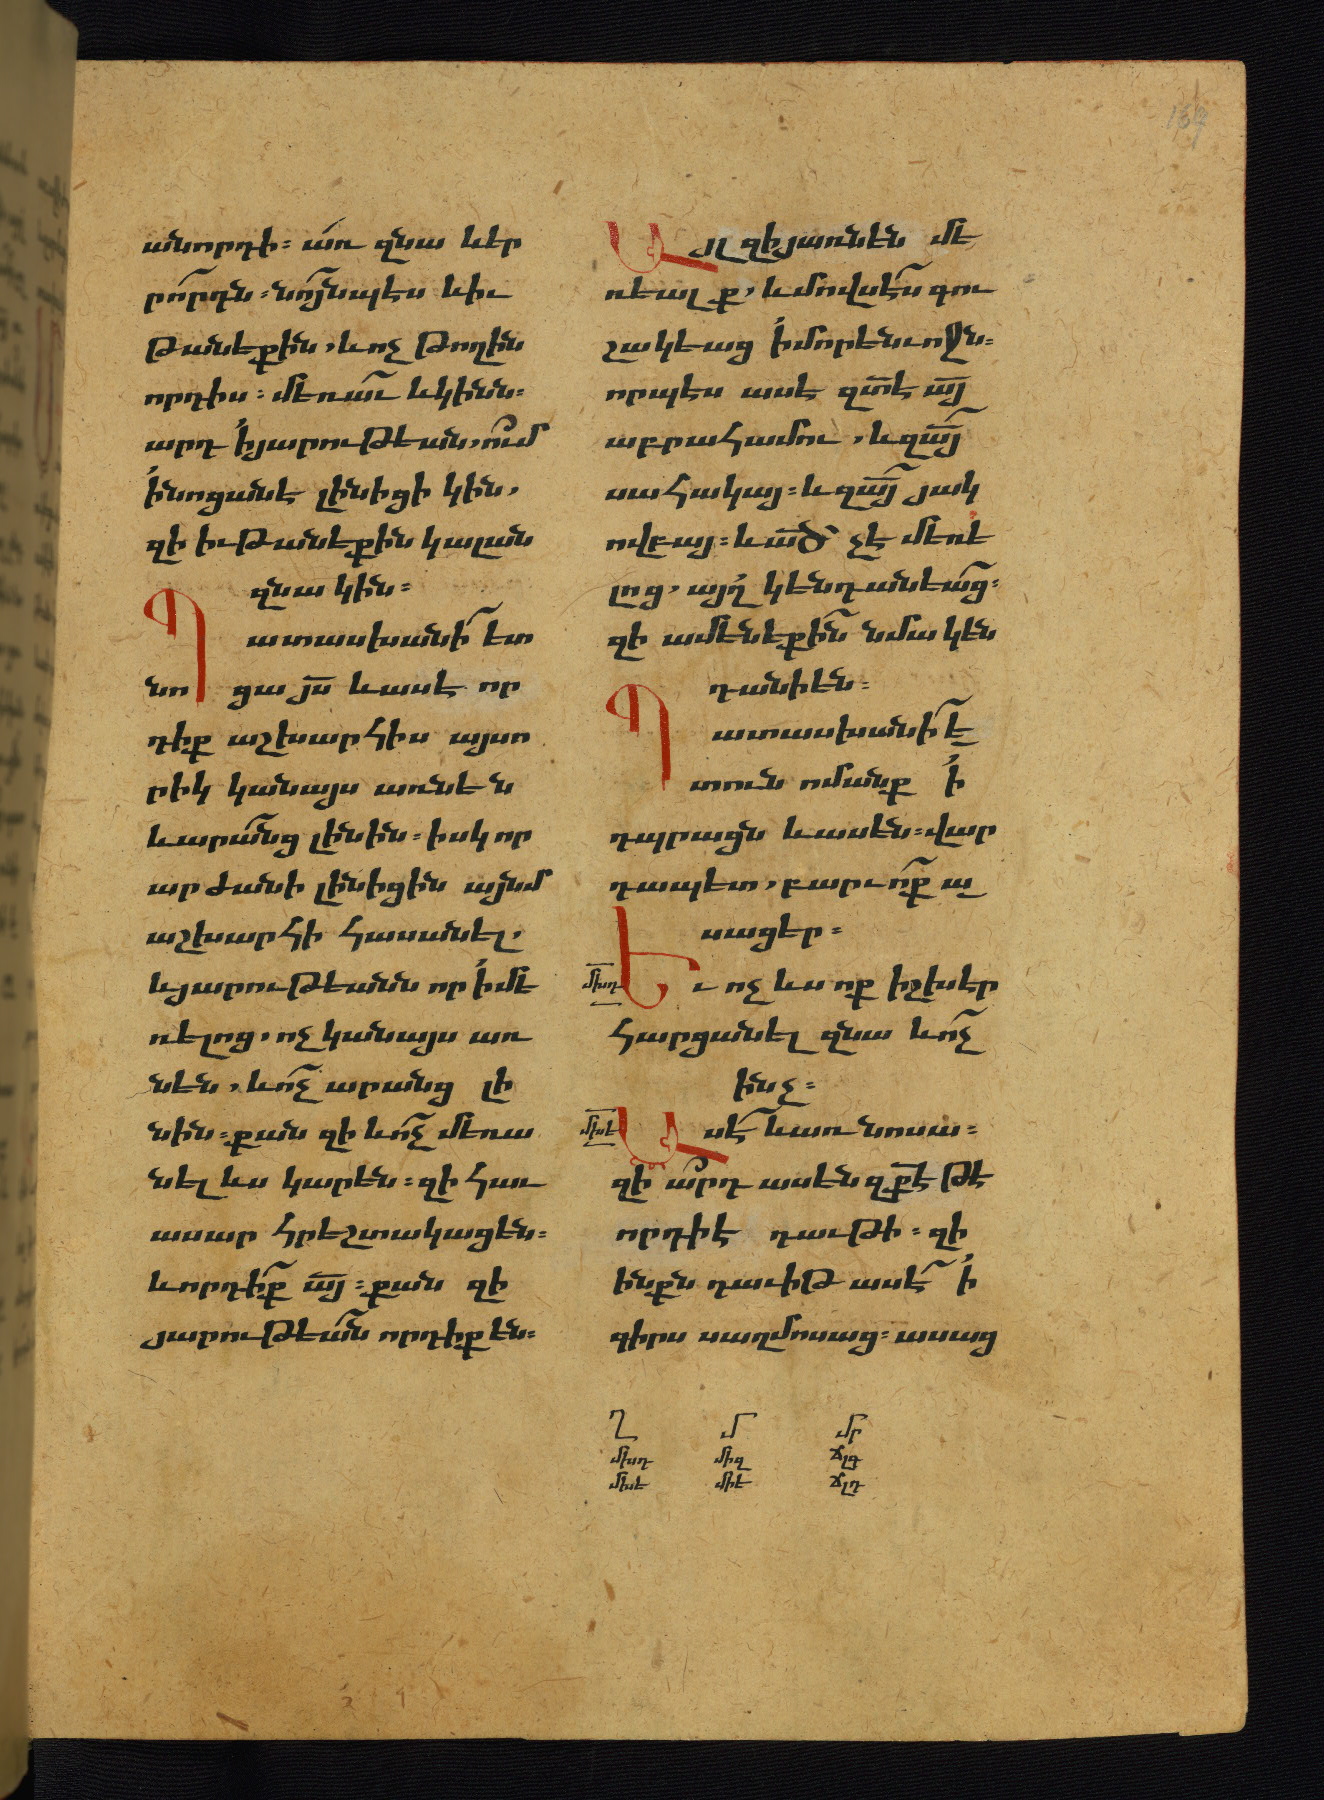 անորդի։ առ զնա ևեր
րորդն։ նոյնպէս ևիւ
թանեքին, ևոչ թողին
որդիս։ մեռաւ ևկինն։
արդ իյարութեան, ում
ինոցանէ լինիցի կին,
զի ևւթանեքին կալան
զնա կին։
Պատասխանի ետ
նոցա յս ևասէ որ
դիք աշխարհիս այսո
րիկ կանայս առնեն
ևարանց լինին։ իսկ որ
արժանի լինիցին այնմ
աշխարհի հասանել,
ևյարութեանն որ իմե
ռելոց, ոչ կանայս առ
նեն, ևոչ արանց լի
նին։ քան զի ևոչ մեռա
նել ևս կարեն։ զի հաւ
ասար հրեշտակաց են։
ևորդիք այ։ քան զի
յարութեան որդիք են։
Այլ զիյառնեն մե
ռեալք, ևմովսէս գու
շակեաց իմորենւոջն։
որպէս ասէ զտէ այ
աբրահամու, ևզայ
սահակայ։ ևզայ յակ
ովբայ։ ևած չէ մեռե
լոց, այղ կենդանեաց։
զի ամենեքին նմա կեն
դանի են։
Պատասխանի ե
տուն ոմանք ի
դպրացն ևասեն։ վար
դապետ, բարւոք ա
սացեր։
մխդ Եւ ոչ ևս ոք իշխեր
հարցանել զնա ևոչ
ինչ։
մխե Ասէ ևառ նոսա։
զի արդ ասեն զքէ թէ
որդի է դաւթի։ զի
ինքն դաւիթ ասէ ի
գիրս սաղմոսաց։ ասաց
Ղ մ մր
մխդ միզ ճլգ
մխե միէ ճլդ